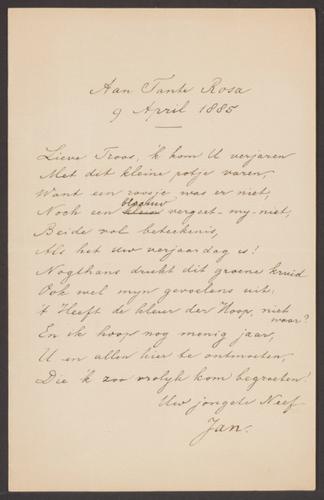 Aan Tante Rosa
9 April 1885
Lieve Troos, 'k kom U verjaren
Met dit kleine potje varen,
Want een roosje was er niet,
Noch een blaauw vergeet-my-niet,
Beide vol beteekenis,
Als het Uw verjaardag is!
Nogthans drukt dit groene kruid
Ook wel myn gevoelens uit:
't Heeft de kleur der Hoop, niet waar?
En ik hoop nog menig jaar,
U en allen hier te ontmoeten,
Die 'k zoo vrolyk kom begroeten!
Uw jongste Neef
Jan.